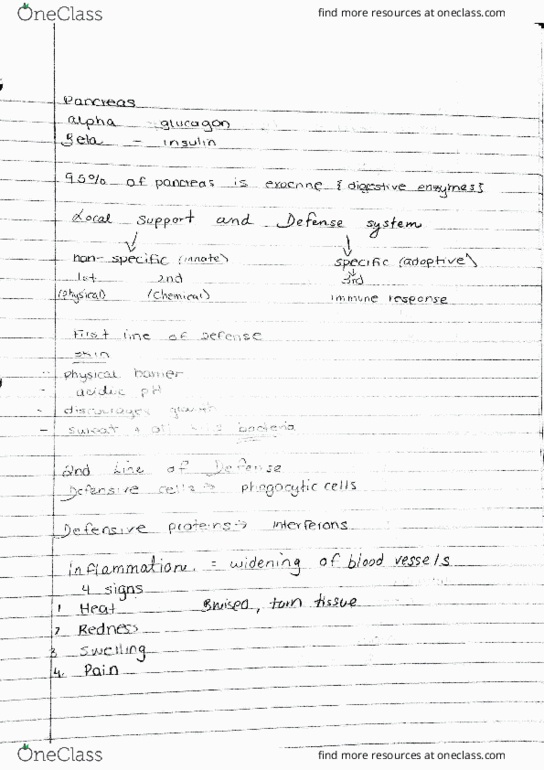 OneClass find more resources at oneclass.com
Pancreas
alpha - glucagon
Beta - insulin
95% of pancreas is exocrine { digestive enzymes }
Local support and Defense system
non-specific (innate) specific (adoptive)
1st 2nd 3rd
(physical) (chemical) immune response
First line of defense
skin
- physical barrier
- acidic pH
- discourages growth
- sweat & oil bacteria
2nd Line of Defense
Defensive cells → phagocytic cells
Defensive proteins → interferons
inflammation = widening of blood vessels
4 signs
1 Heat Bruised, torn tissue
2 Redness
3 swelling
4. Pain
OneClass find more resources at oneclass.com